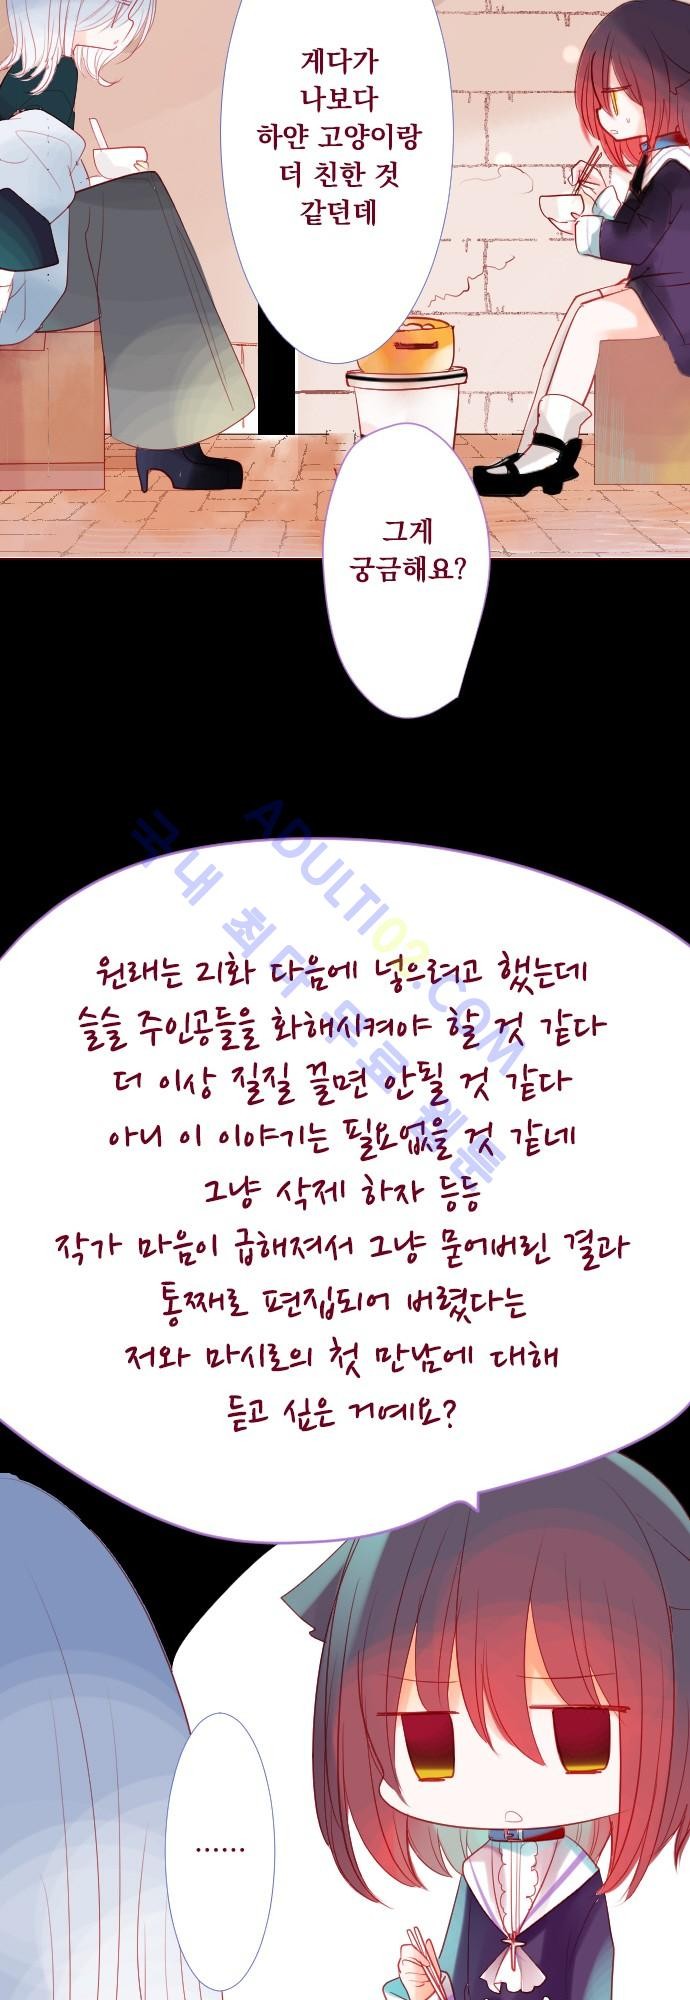 게다가
나보다
하얀 고양이랑
더 친한 것
같던데
그게
궁금해요?
ADULTI02.COM
국내 최다 무료 웹툰
원래는 리화 다음에 넣으려고 했는데
슬슬 주인공들을 화해시켜야 할 것 같다
더 이상 질질 끌면 안될 것 같다
아니 이 이야기는 필요없을 것 같네
그냥 삭제 하자 등등
작가 마음이 급해져서 그냥 묻어버린 결과
통째로 편집되어 버렸다는
저와 마시로의 첫 만남에 대해
듣고 싶은 거예요?
······